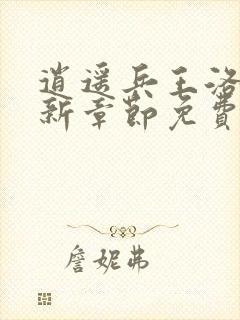 逍遥兵王洛
新章节免费
詹妮弗